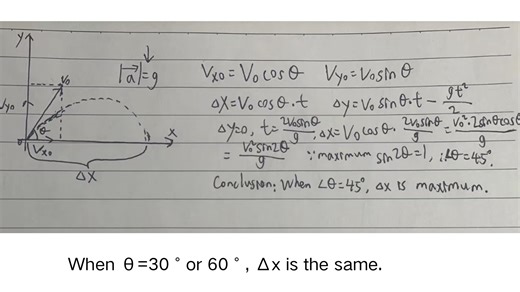 y
|a⃗|=g
V₀
Vy₀
θ
0
Vx₀
x
Δx
Vx₀=V₀cosθ Vy₀=V₀sinθ
Δx=V₀cosθ·t Δy=V₀sinθ·t - gt²/2
Δy=0, t=2V₀sinθ/g, Δx=V₀cosθ·2V₀sinθ/g=V₀²·2sinθcosθ/g
=V₀²sin2θ/g ∵maximum sin2θ=1, ∴∠θ=45°
Conclusion: When ∠θ=45°, Δx is maximum.
When θ=30° or 60°, Δx is the same.